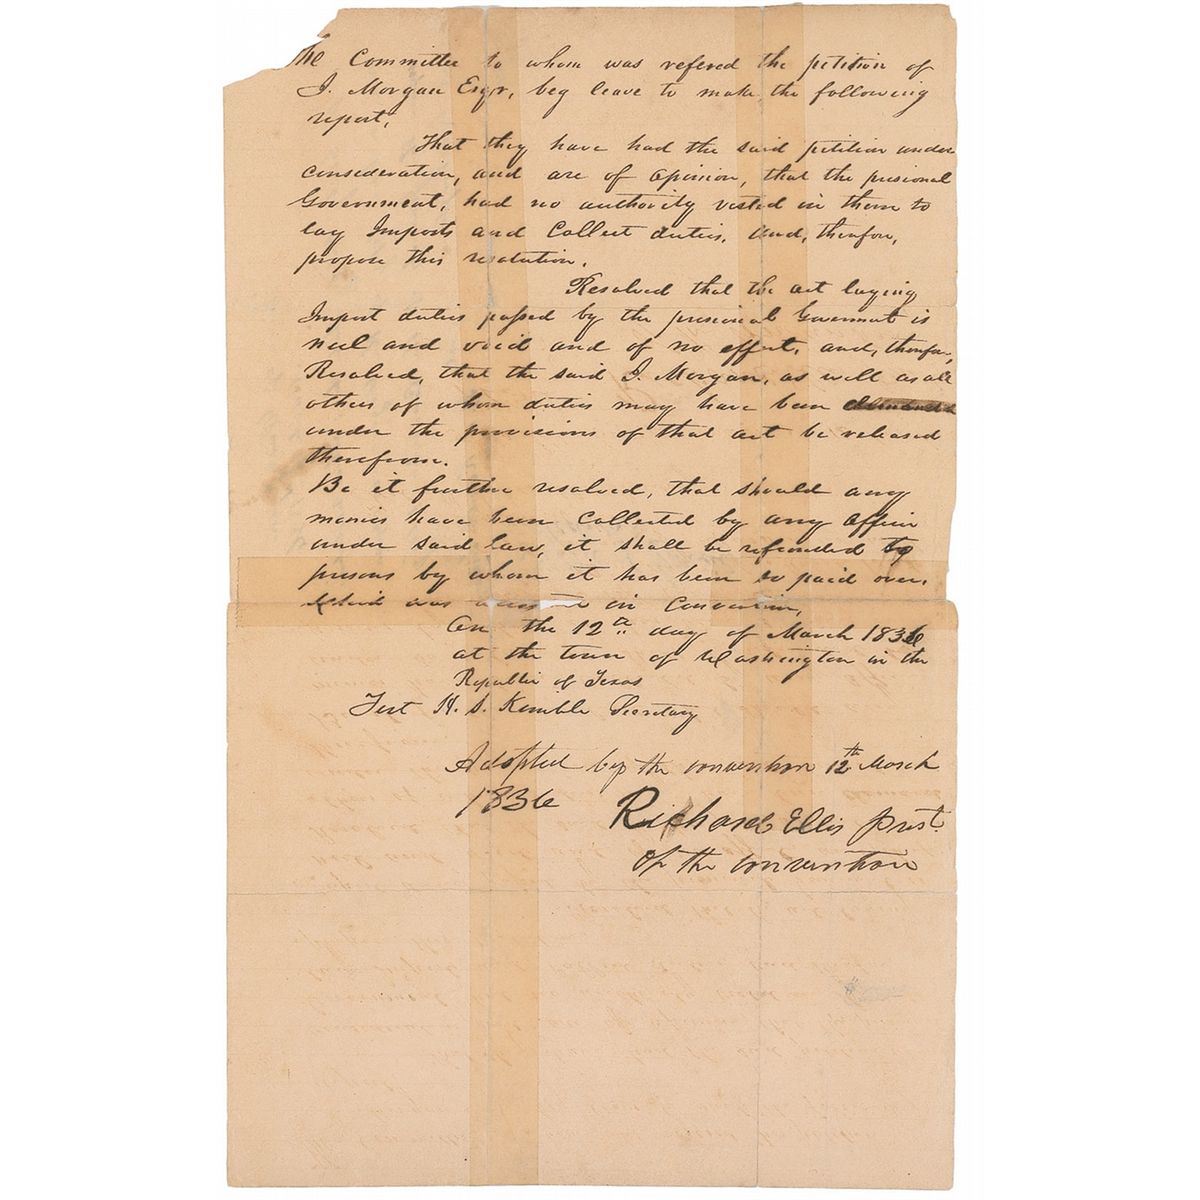 he Committee to whom was refered the petition of
J. Morgan Esqr, beg leave to make the following
report,
That they have had the said petition under
consideration, and are of opinion, that the
Government, had no authority vested in them to
lay Imports and Collect duties, and, therefore,
propose this resolution,
Resolved that the act laying
Import duties passed by the Government is
null and void and of no effect, and, therefore,
Resolved, that the said J. Morgan, as well as all
others of whom duties may have been
under the provisions of that act be released
therefrom.
Be it further resolved, that should any
monies have been Collected by any Officer
under said law, it shall be refunded to
persons by whom it has been so paid over.
Which was in Convention,
On the 12th day of March 1836
at the town of Washington in the
Republic of Texas
Test H. S. Kimble Secretary
Adopted by the convention 12th March
1836
Richard Ellis Prest.
of the convention